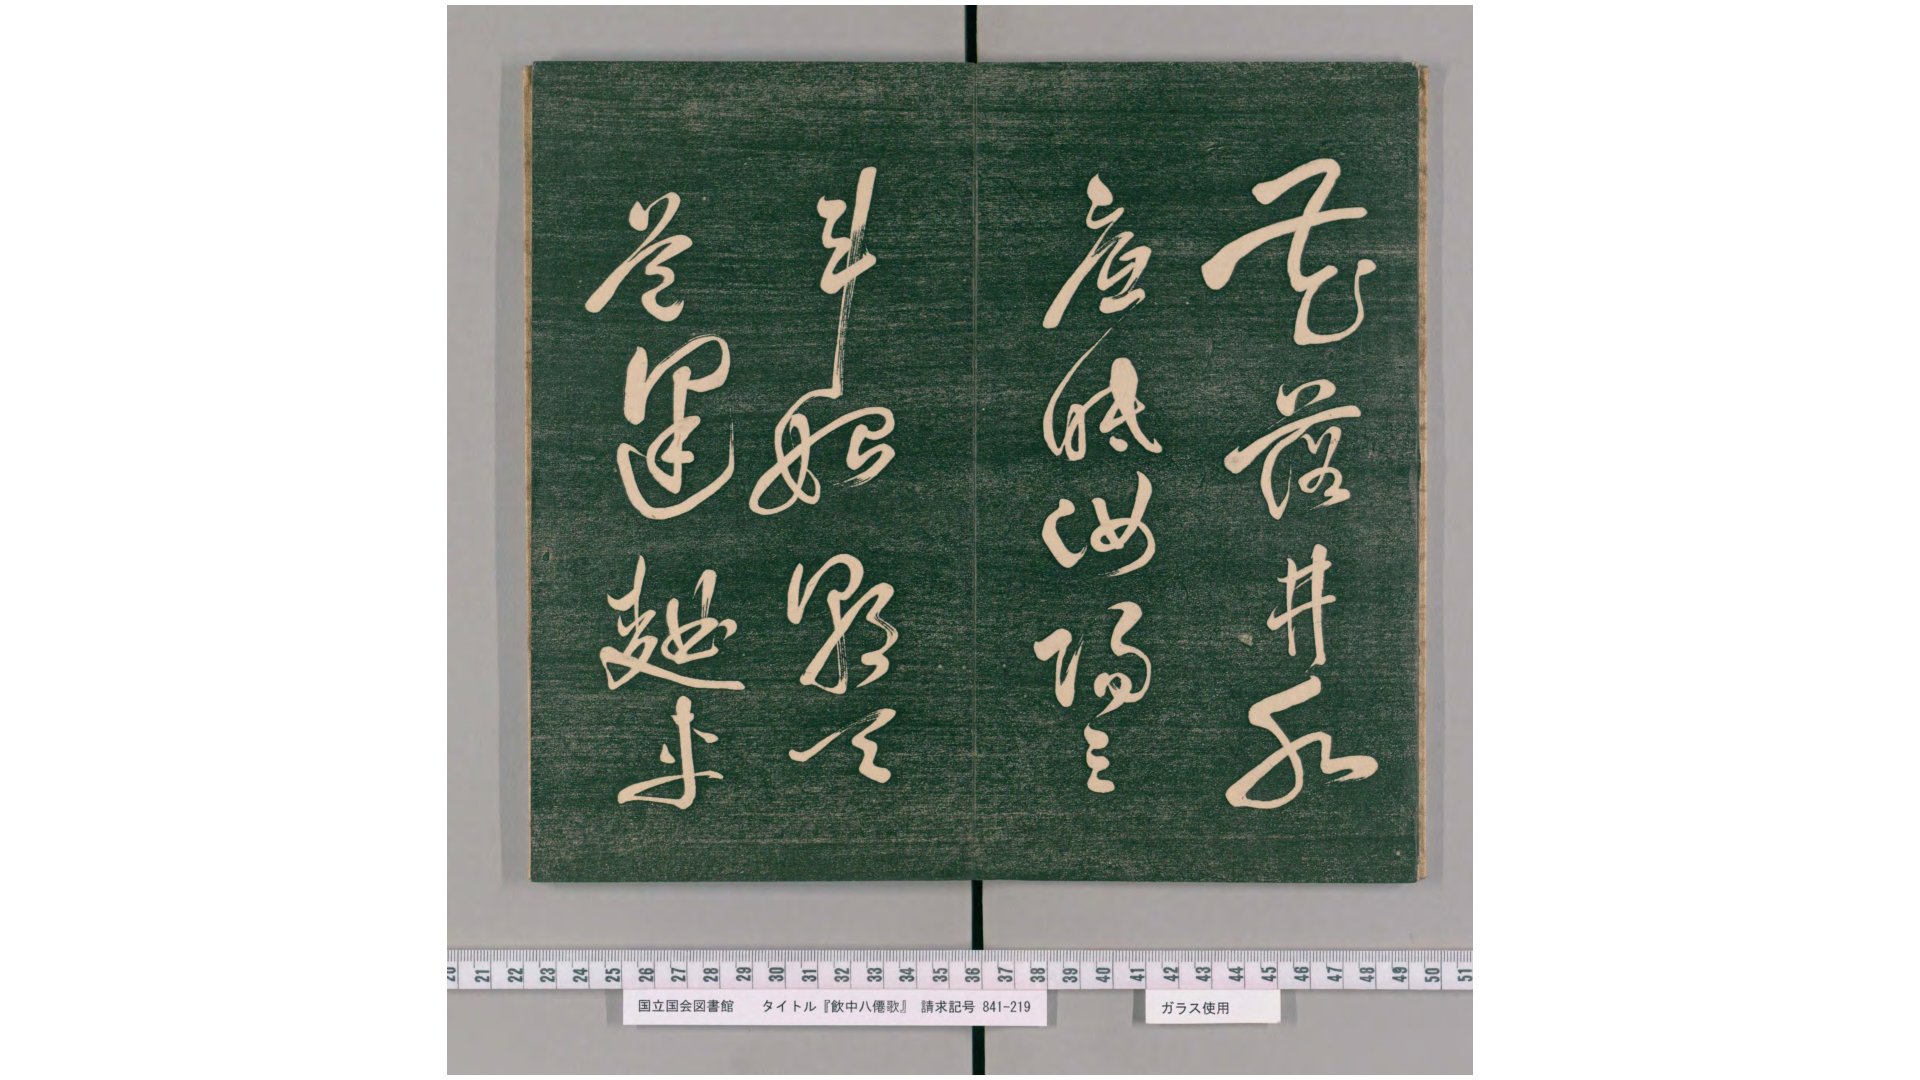 花落井水
底眠汝陽三
斗始朝天
道逢麹車
20 21 22 23 24 25 26 27 28 29 30 31 32 33 34 35 36 37 38 39 40 41 42 43 44 45 46 47 48 49 50 51
国立国会図書館 タイトル『飲中八僊歌』 請求記号 841-219
ガラス使用